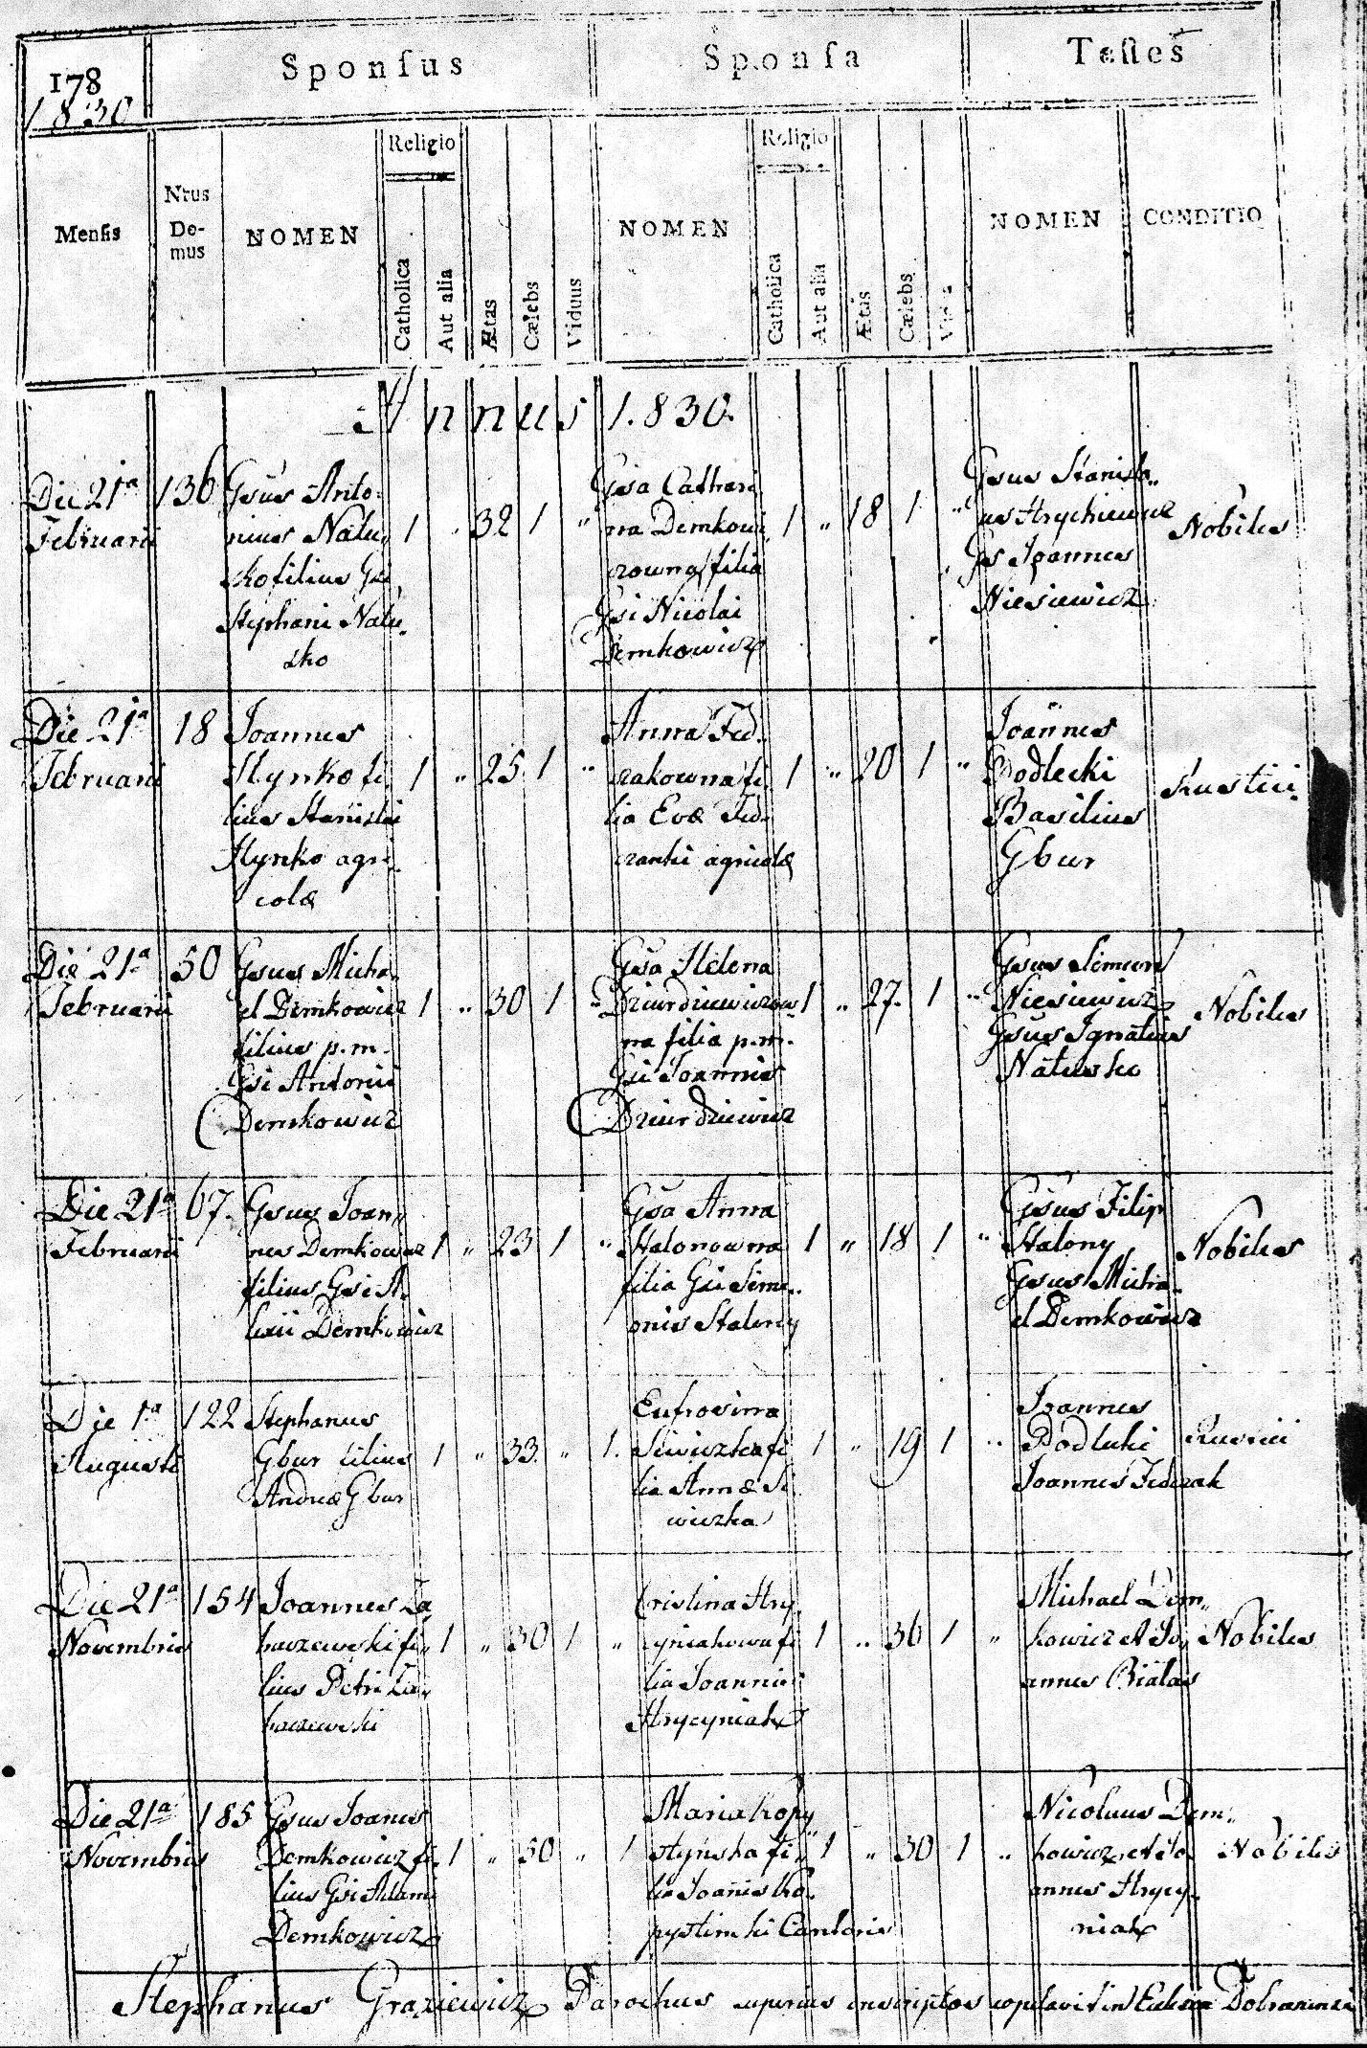 178
1830
Sponſus
Sponſa
Teſtes
Menſis
Nrus De-mus
NOMEN
Religio
Catholica
Aut alia
Ætas
Cælebs
Viduus
NOMEN
Religio
Catholica
Aut alia
Ætas
Cælebs
NOMEN
CONDITIO
Annus 1.830.
Die 21a
Februarii
136
Gsus Anto-
nius Natu-
sko filius Gsi
Stephani Natu-
sko
1 " 32 1 "
Gsa Cathari
na Demkowi
czowna filia
Gsi Nicolai
Demkowicz
1 " 18 1 "
Gsus Stanisla-
us Hrychiewicz
Gs Joannes
Niesiewicz
Nobiles
Die 21a
Februarii
18
Joannes
Hynko fi-
lius Stanislai
Hynko agri-
colæ
1 " 25 1 "
Anna Fed-
czakowna fi-
lia Evæ Fed-
czanki agricolæ
1 " 20 1 "
Joannes
Podlecki
Basilius
Gbur
Rustici
Die 21a
Februarii
50
Gsus Micha-
el Demkowicz
filius p.m.
Gsi Antonii
Demkowicz
1 " 30 1 "
Gsa Helena
Dziurdziewiczow-
na filia p.m.
Gsi Joannis
Dziurdziewicz
1 " 27. 1 "
Gsus Simeon
Niesiewicz
Gsus Ignatius
Natusko
Nobiles
Die 21a
Februarii
67.
Gsus Joan-
nes Demkowicz
filius Gsi A-
lexii Demkowicz
1 " 23 1 "
Gsa Anna
Halonowna
filia Gsi Sime-
onis Halony
1 " 18 1 "
Gsus Filip
Halony
Gsus Micha-
el Demkowicz
Nobiles
Die 1a
Augusti
122
Stephanus
Gbur filius
Andreæ Gbur
1 " 33. " 1.
Eufrosina
Siwiczka fi-
lia Annæ Si-
wiczka
1 " 19 1 "
Joannes
Podlecki
Joannes Fedczak
Rustici
Die 21a
Novembris
154
Joannes Za-
haczewski fi-
lius Petri Za-
haczewski
1 " 30 1 "
Cristina Hry
cyniakowa fi
lia Joannis
Hrycyniak
1 " 36 1 "
Michael Dem-
kowicz et Jo-
annes Bialas
Nobiles
Die 21a
Novembris
185
Gsus Joanes
Demkowicz fi-
lius Gsi Adami
Demkowicz
1 " 50 " 1
Maria Kopy
stynska fi-
lia Joanis Ko-
pystinski Cantoris
1 " 30 1 "
Nicolaus Dem-
kowicz et Jo
annes Hrycy-
niak
Nobiles
Stephanus Graziewicz Parochus superius inscriptos copulavit in Eccl